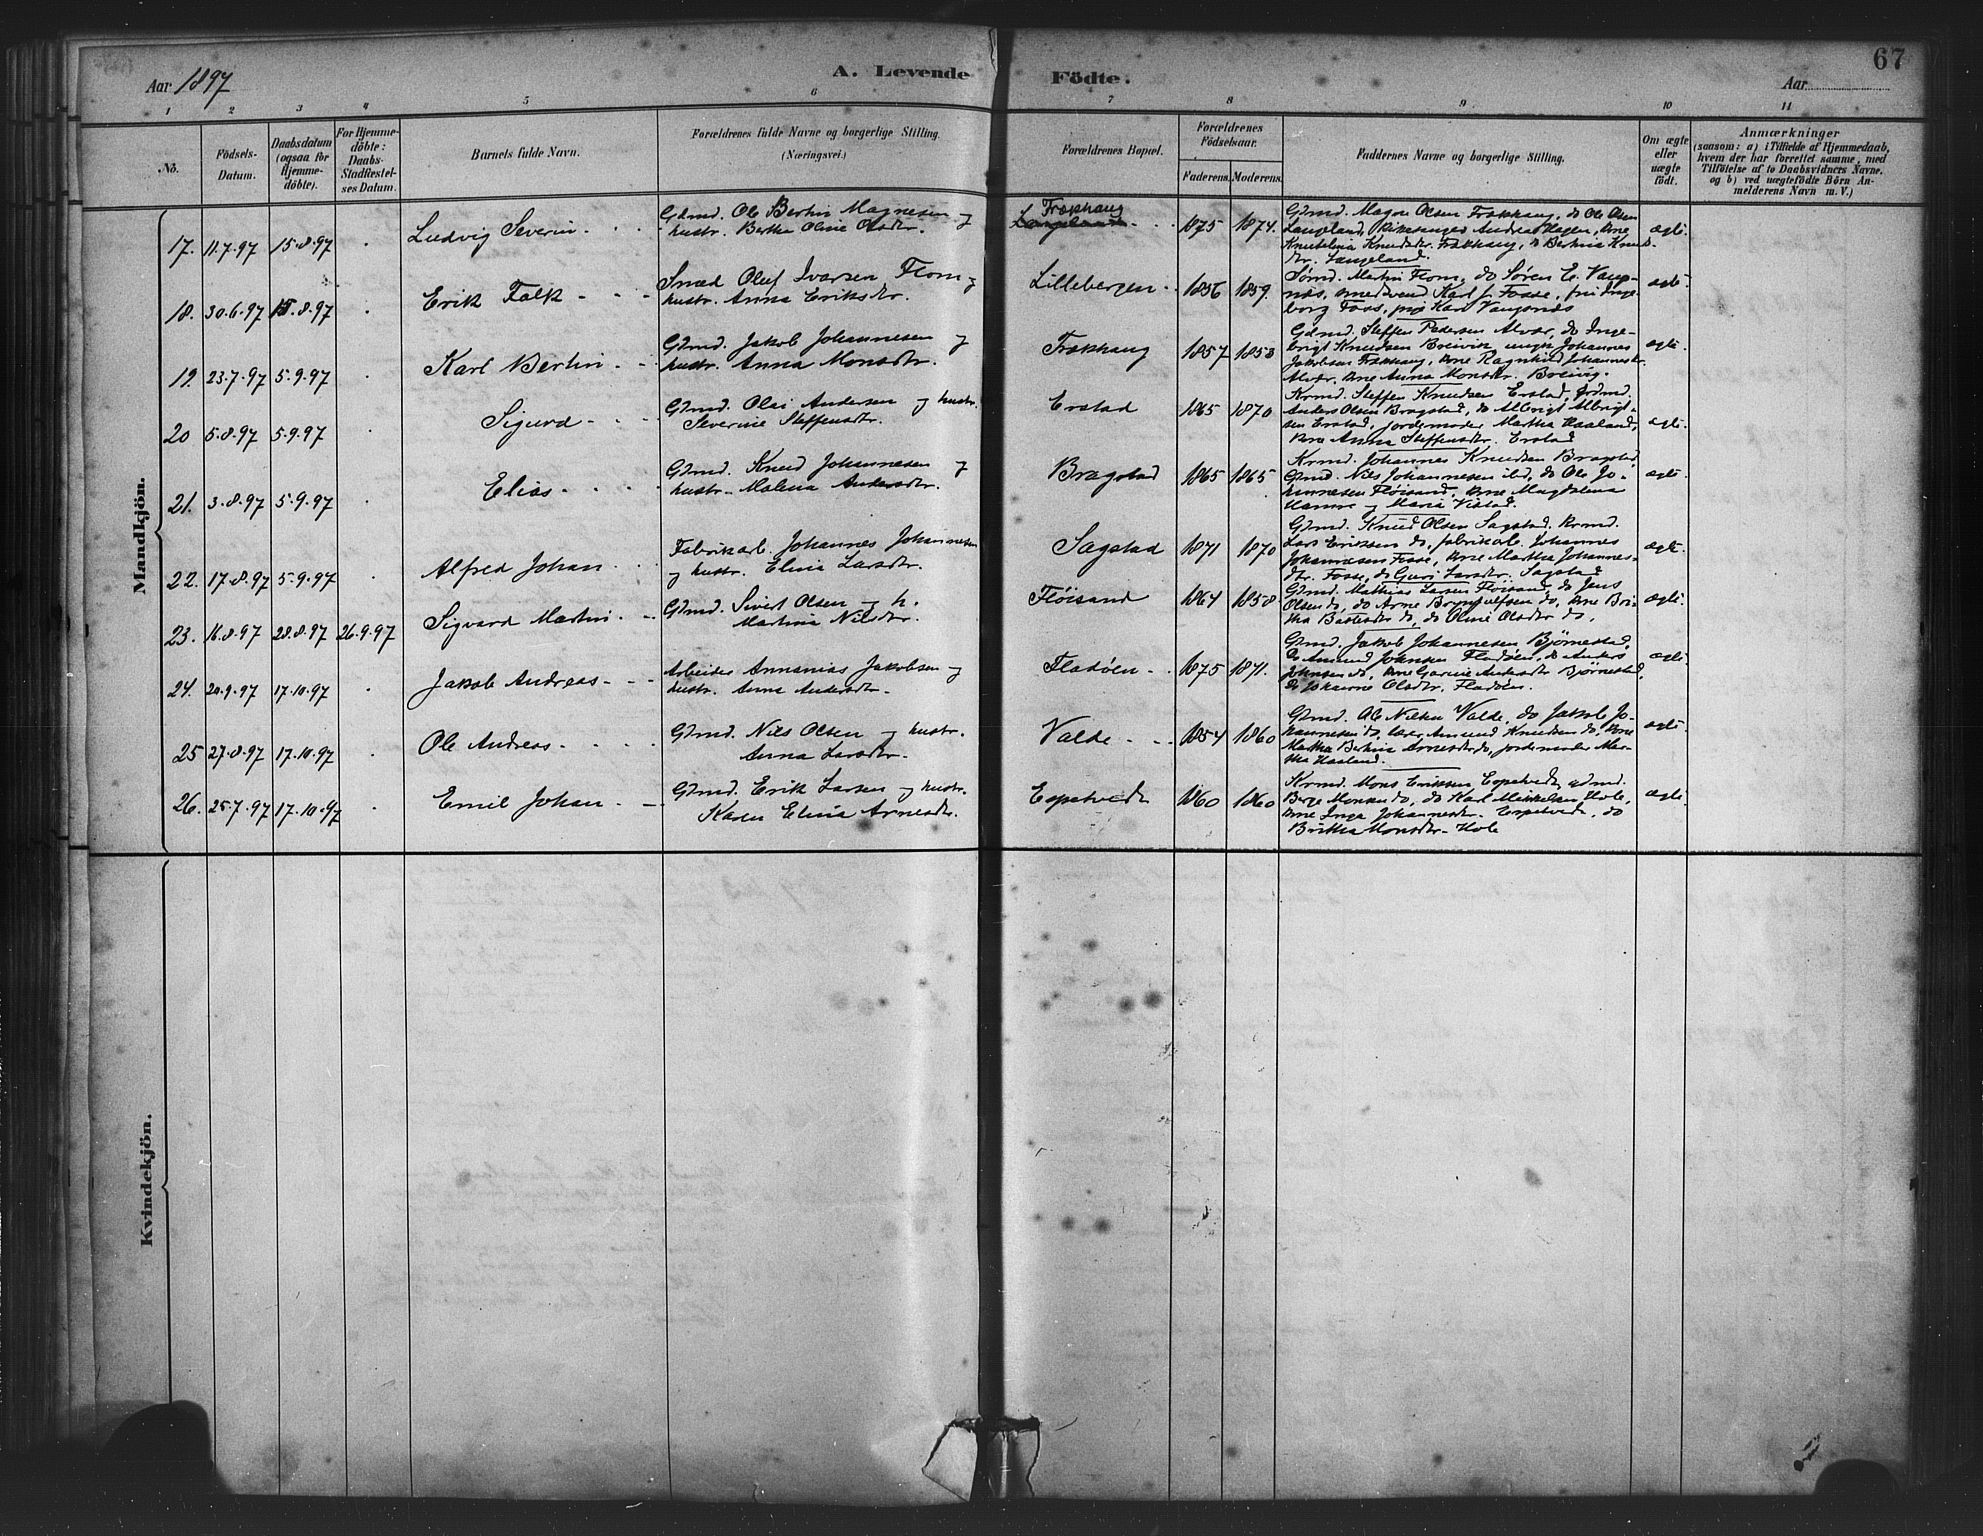 67
Aar 1897
A. Levende Födte.
Aar
1 2 3 4 5 6 7 8 9 10 11
No.
Födsels-Datum.
Daabsdatum (ogsaa for Hjemme-döbte).
For Hjemme-döbte: Daabs-Stadfæstel-ses Datum.
Barnets fulde Navn.
Forældrenes fulde Navne og borgerlige Stilling.
(Næringsvei.)
Forældrenes Bopæl.
Forældrenes Födselsaar.
Faderens. Moderens.
Faddernes Navne og borgerlige Stilling.
Om ægte eller uægte födt.
Anmærkninger
(saasom: a) i Tilfælde af Hjemmedaab,
hvem der har forrettet samme, med
Tilföielse af to Daabsvidners Navne.
og b) ved uægtefödte Börn An-
melderens Navn m. V.)
Mandkjön.
17. 11.7.97 15.8.97 Ludvig Severin
Gdmd. Ole Bertin Magnesen og
hustr. Berthe Oline Olsdtr.
Frækhaug
Langeland
1875 1874.
Gdmd. Magne Olsen Frækhaug, do Ole Olsen
Langeland, Andreas Hagen, kne
Knutelina Knudsdtr. Frækhaug, do Bertina Knuds-
dtr. Langeland.
ægte.
18. 30.6.97 15.8.97 Erik Falk
Smed Oluf Ivarsen Flom og
hustr. Anna Eriksdtr.
Lillebergen
1856 1859.
Sømd. Martin Flom, do Søren E. Vangs-
næs, Karl J. Fosse, frk Inge-
borg Foss, pige Kari Vangsnæs
ægte
19. 23.7.97 5.9.97 Karl Bertin
Gdmd. Jakob Johannesen og
hustr. Anna Monsdtr.
Frækhaug
1857 1858
Gdmd. Steffen Pedersen Alvær, do Inge-
brigt Knudsen Breivik, ungk Johannes
Jakobsen Frækhaug, kne Ragnhild Johannesdtr.
Alvær, kne Anna Monsdtr. Breivig.
ægte.
20 5.8.97 5.9.97 Sigurd
Gdmd. Olai Andersen og hustr.
Severine Steffensdtr.
Erstad
1865 1870
Krmd. Steffen Knudsen Erstad, Gdmd
Anders Olsen Bragstad, do Albrigt Albrigt-
sen Erstad, jordemoder Martha Haaland,
kne Anna Steffensdtr. Erstad
ægte.
21. 3.8.97 5.9.97 Elias
Gdmd. Knud Johannesen og
hustr. Malena Andersdtr.
Bragstad
1865 1865
Krmd. Johannes Knudsen Bragstad,
Gdmd. Nils Johannesen ibd, do Ole Jo-
hannesen Fløisand, kne Magdalena
Hamre og Maria Vistad.
ægte.
22. 17.8.97 5.9.97 Alfred Johan
Fabrikarb. Johannes Johannesen
og hustr. Elina Larsdtr.
Sagstad
1871 1870
Gdmd. Knud Olsen Sagstad. Krmd.
Lars Eriksen do, fabrikarb. Johannes
Johannesen Fosse, kne Martha Johannes-
dtr. Fosse, do Guri Larsdtr. Sagstad
ægte.
23. 16.8.97 28.8.97 26.9.97 Sigvard Martin
Gdmd. Sivert Olsen og h.
Martina Nilsdtr.
Fløisand
1864 1858
Gdmd. Mathias Larsen Fløisand, do Jens
Olsen do, do Arne Brynjulfsen do, kne Bri-
tha do, do Oline Olsdtr do.
ægte.
24. 20.9.97 17.10.97 Jakob Andreas
Arbeider Annanias Jakobsen og
hustr. Anna Andersdtr.
Fladøen
1875 1871.
Gdmd. Jakob Johannesen Bjørnestad,
do Amund Johnsen Fladøen, do Anders
Johnsen do, kne Andersdtr Bjørnestad,
do Johanne Olsdtr. Fladøen.
ægte.
25 27.8.97 17.10.97 Ole Andreas
Gdmd. Nils Olsen og hustr.
Anna Larsdtr.
Valde
1854 1860
Gdmd. Ole Nilsen Valde, do Jakob Jo-
hannesen do, Amund Knudsen do, kne
Martha Bertina Arnesdtr do, jordemoder Mar-
tha Haaland.
ægte.
26. 25.7.97 17.10.97 Emil Johan
Gdmd. Erik Larsen og hustr.
Karen Elina Arnesdtr.
Espetvedt
1860 1860
Krmd. Mons Eriksen Espetvedt, gdmd.
Berge Monsen do, do Karl Mikkelsen Hole,
kne Inga Johannesdtr. Espetvedt, do
Britha Monsdtr. Hole
ægte.
Kvindekjön.